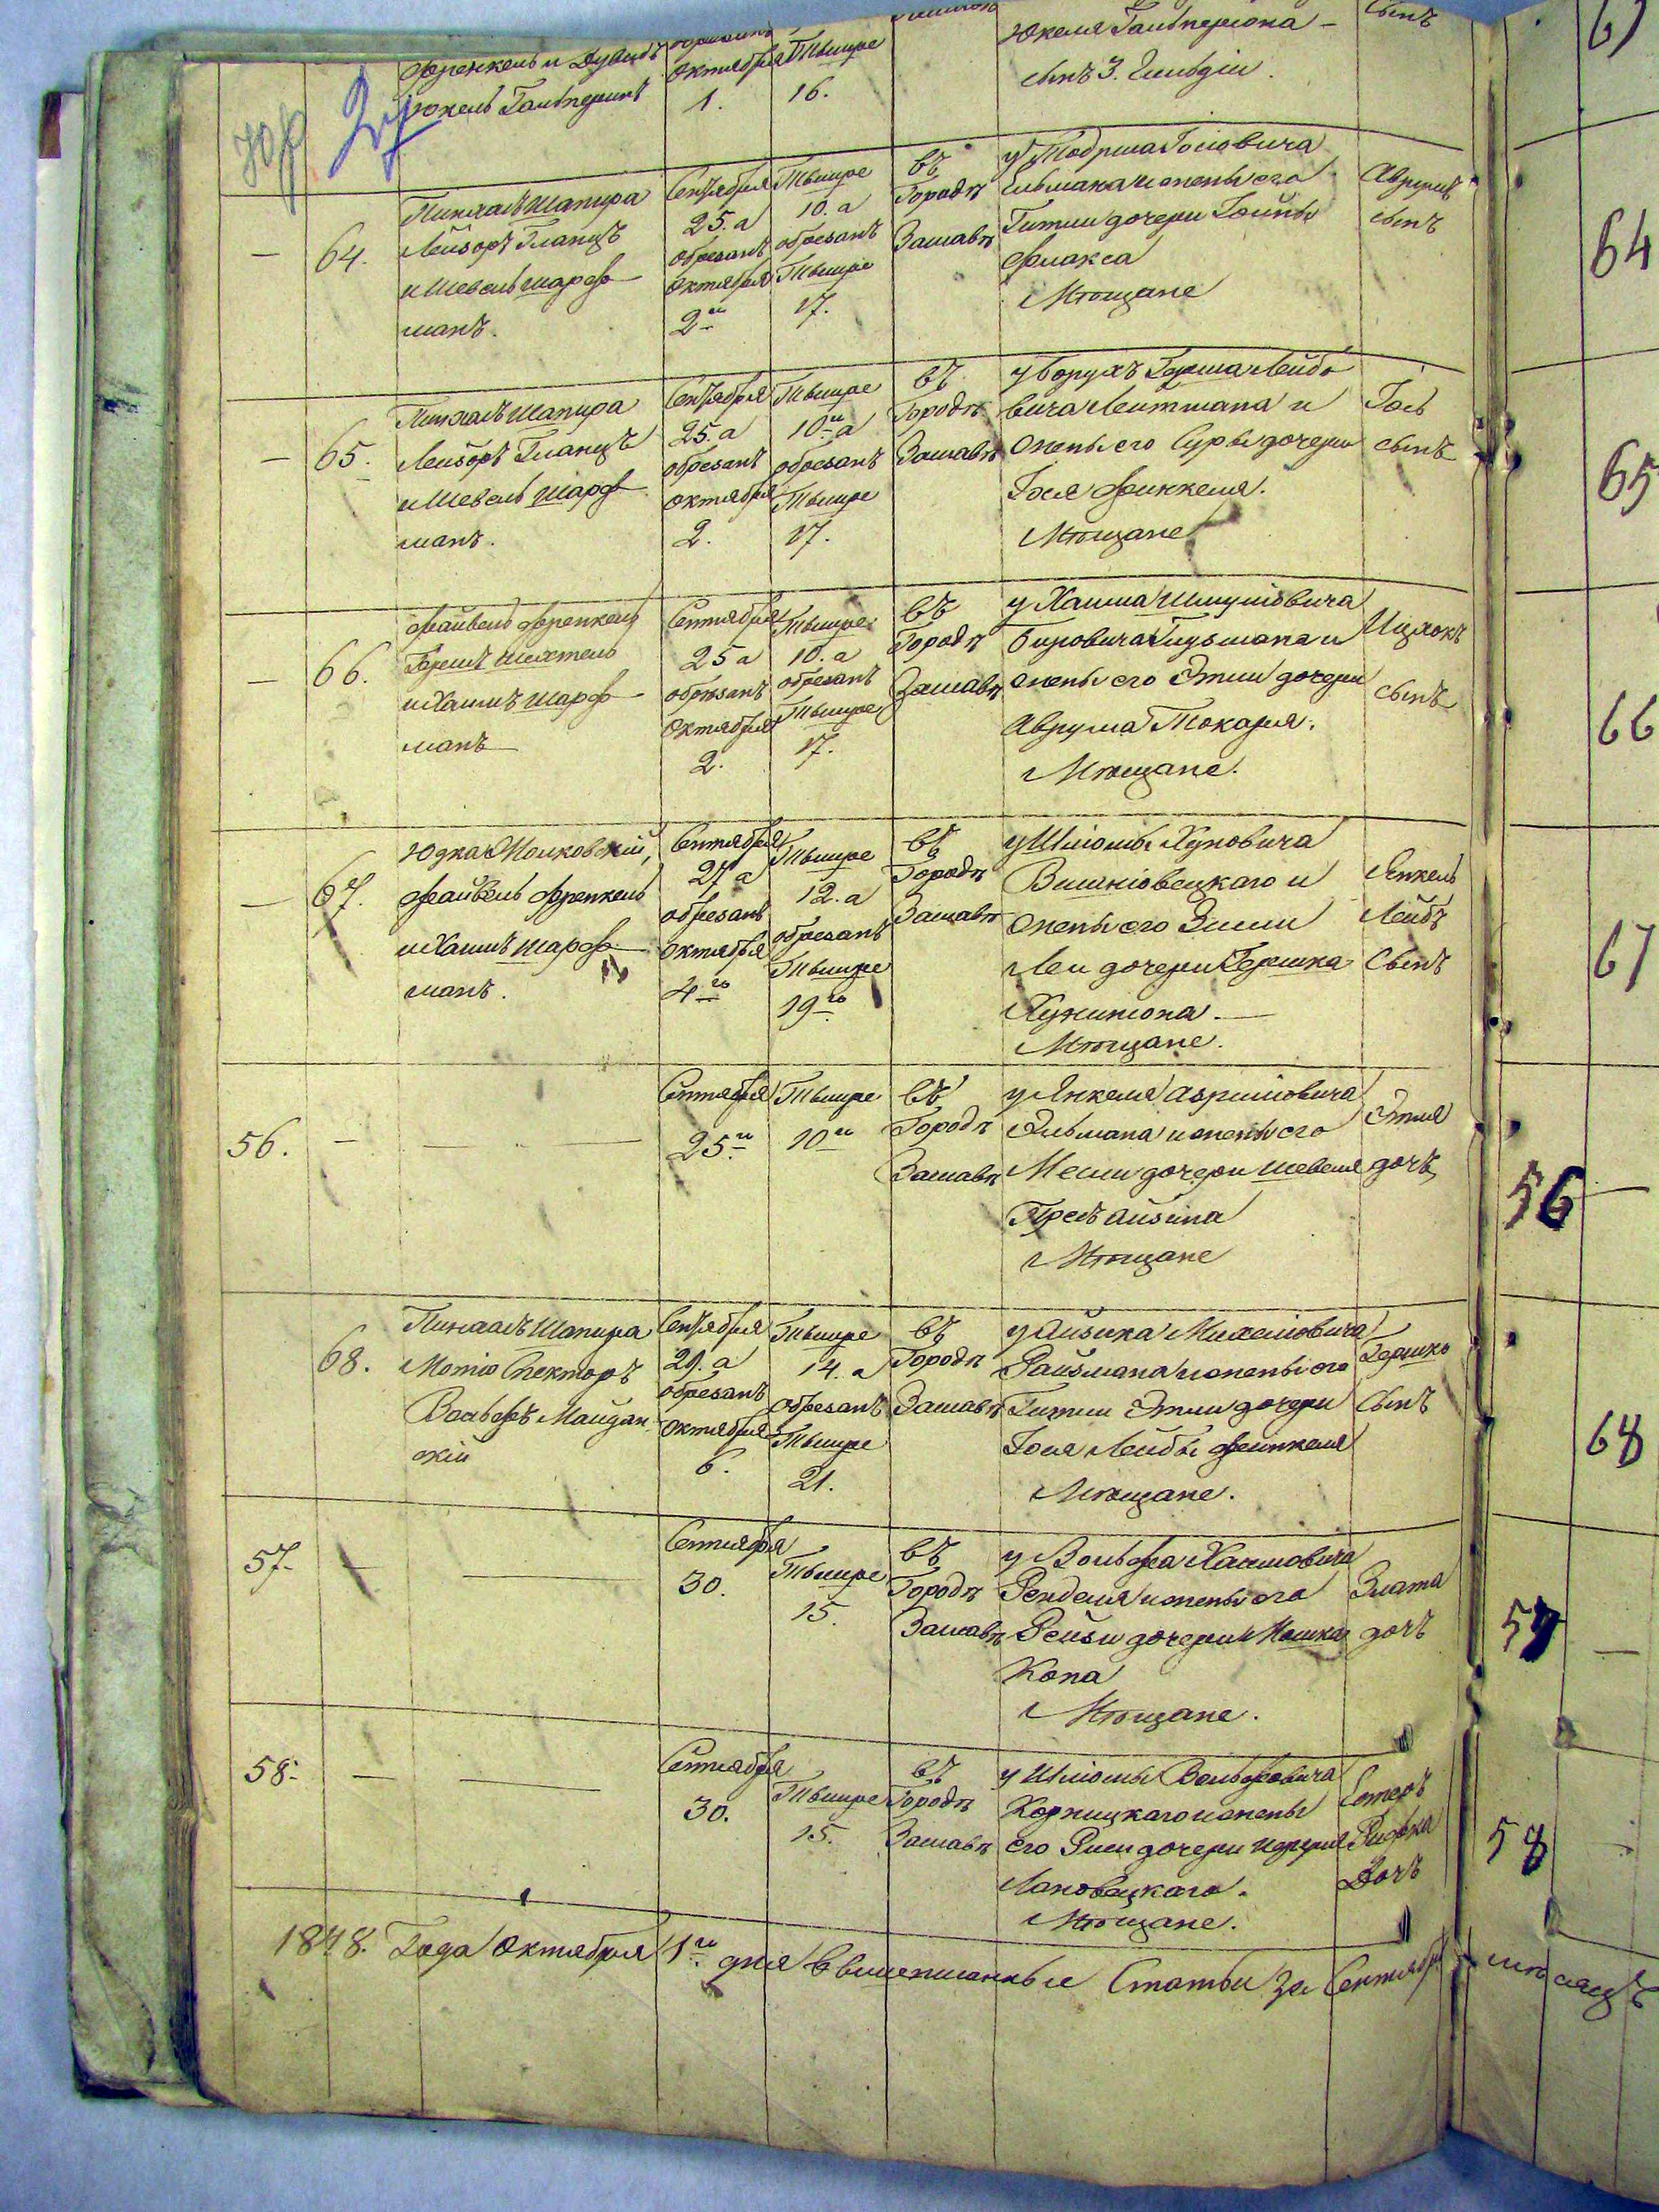 Френкель и Дувидъ
Юкель Гальперинъ
Октября
1.
Тышре
16.
Юкеля Гальперона
сынъ 3. Гильдіи.
сынъ
64.
Пинхасъ Шапира
Лейзоръ Гланцъ
и Шевель Шарф
манъ.
Сентября
25. а
обрезанъ
Октября
2го
Тышре
10. а
обрезанъ
Тышре
17.
въ
Городѣ
Заславѣ
Гительмана и жены его
Гитли дочери
Флакса
Мѣщане
Аврумъ
сынъ
64
65.
Пинхасъ Шапира
Лейзоръ Гланцъ
и Шевель Шарф
манъ.
Сентября
25. а
обрезанъ
Октября
2.
Тышре
10го а
обрезанъ
Тышре
17.
въ
Городѣ
Заславѣ
у Борухъ Герша Лейбо
вича Лейтмана и
жены его Суры дочери
Іося Финкеля.
Мѣщане
Іось
сынъ
65
66.
Файвель Френкель
Гершъ Шехтель
и Хаимъ Шарф
манъ
Сентября
25 а
обрѣзанъ
Октября
2.
Тышре
10. а
обрезанъ
Тышре
17.
въ
Городѣ
Заславѣ
у Хаима Шмуловича
Беровича Гузьмана и
жены его Этли дочери
Аврума Токаря.
Мѣщане.
Ицхокъ
сынъ
66
67.
Юдка Волковскій,
Файвель Френкель
и Хаимъ Шарф
манъ.
Сентября
27 а
обрезанъ
Октября
4го
Тышре
12. а
обрезанъ
Тышре
19го
въ
Городѣ
Заславѣ
у Шліомы Хуновича
Вишніовецкаго и
жены его Зисли
Леи дочери Гершка
Мѣщане.
Янкель
Лейбъ
Сынъ
67
56.
Сентября
25го
Тышре
10го
въ
Городѣ
Заславѣ
у Янкеля Авруміовича
Эльмана и жены его
Мени дочери Шевеля
Мѣщане
Этля
дочъ
56
68.
Пинхасъ Шапира
Мотіо Спекторъ
Вольфъ Майдан
скій
Сентября
29. а
обрезанъ
Октября
6.
Тышре
14. а
обрезанъ
Тышре
21.
въ
Городѣ
Заславѣ
у Айзика Михеліовича
Райзмана и жены его
Гитли Этли дочери
Іося Лейбы Финкеля
Мѣщане.
Гершко
Сынъ
68
57.
Сентября
30.
Тышре
15.
въ
Городѣ
Заславѣ
у Вольфа Хаимовича
Ренделя и жены его
Рейзи дочери Мошка
Копа
Мѣщане.
Злата
дочъ
57
58.
Сентября
30.
Тышре
15.
въ
Городѣ
Заславѣ
у Шліомы Вольфовича
Корницкаго и жены
его дочери
Лановецкаго.
Мѣщане.
Эстеръ
Рифка
Дочъ
58
1848. Года Октября 1го дня Статьи За Сентябрь месяцъ